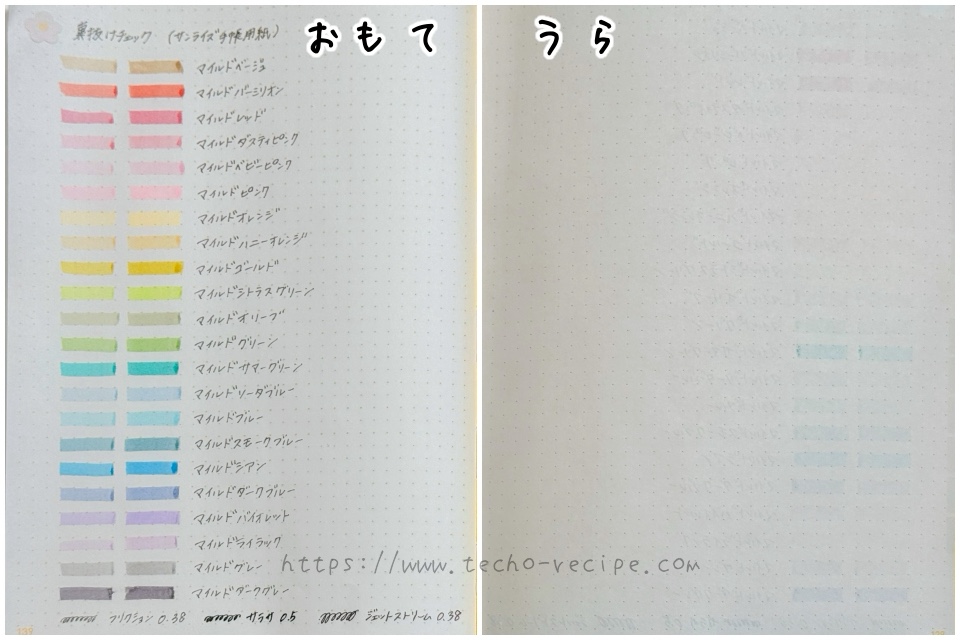 おもて
うら
裏抜けチェック (サンライズ手帳用紙)
マイルドベージュ
マイルドバーミリオン
マイルドレッド
マイルドダスティピンク
マイルドベビーピンク
マイルドピンク
マイルドオレンジ
マイルドハニーオレンジ
マイルドゴールド
マイルドシトラスグリーン
マイルドオリーブ
マイルドグリーン
マイルドサマーグリーン
マイルドソーダブルー
マイルドブルー
マイルドスモークブルー
マイルドシアン
マイルドダークブルー
マイルドバイオレット
マイルドライラック
マイルドグレー
マイルドダークグレー
フリクション 0.38 サラサ 0.5 ジェットストリーム 0.38
137
https://www.techo-recipe.com